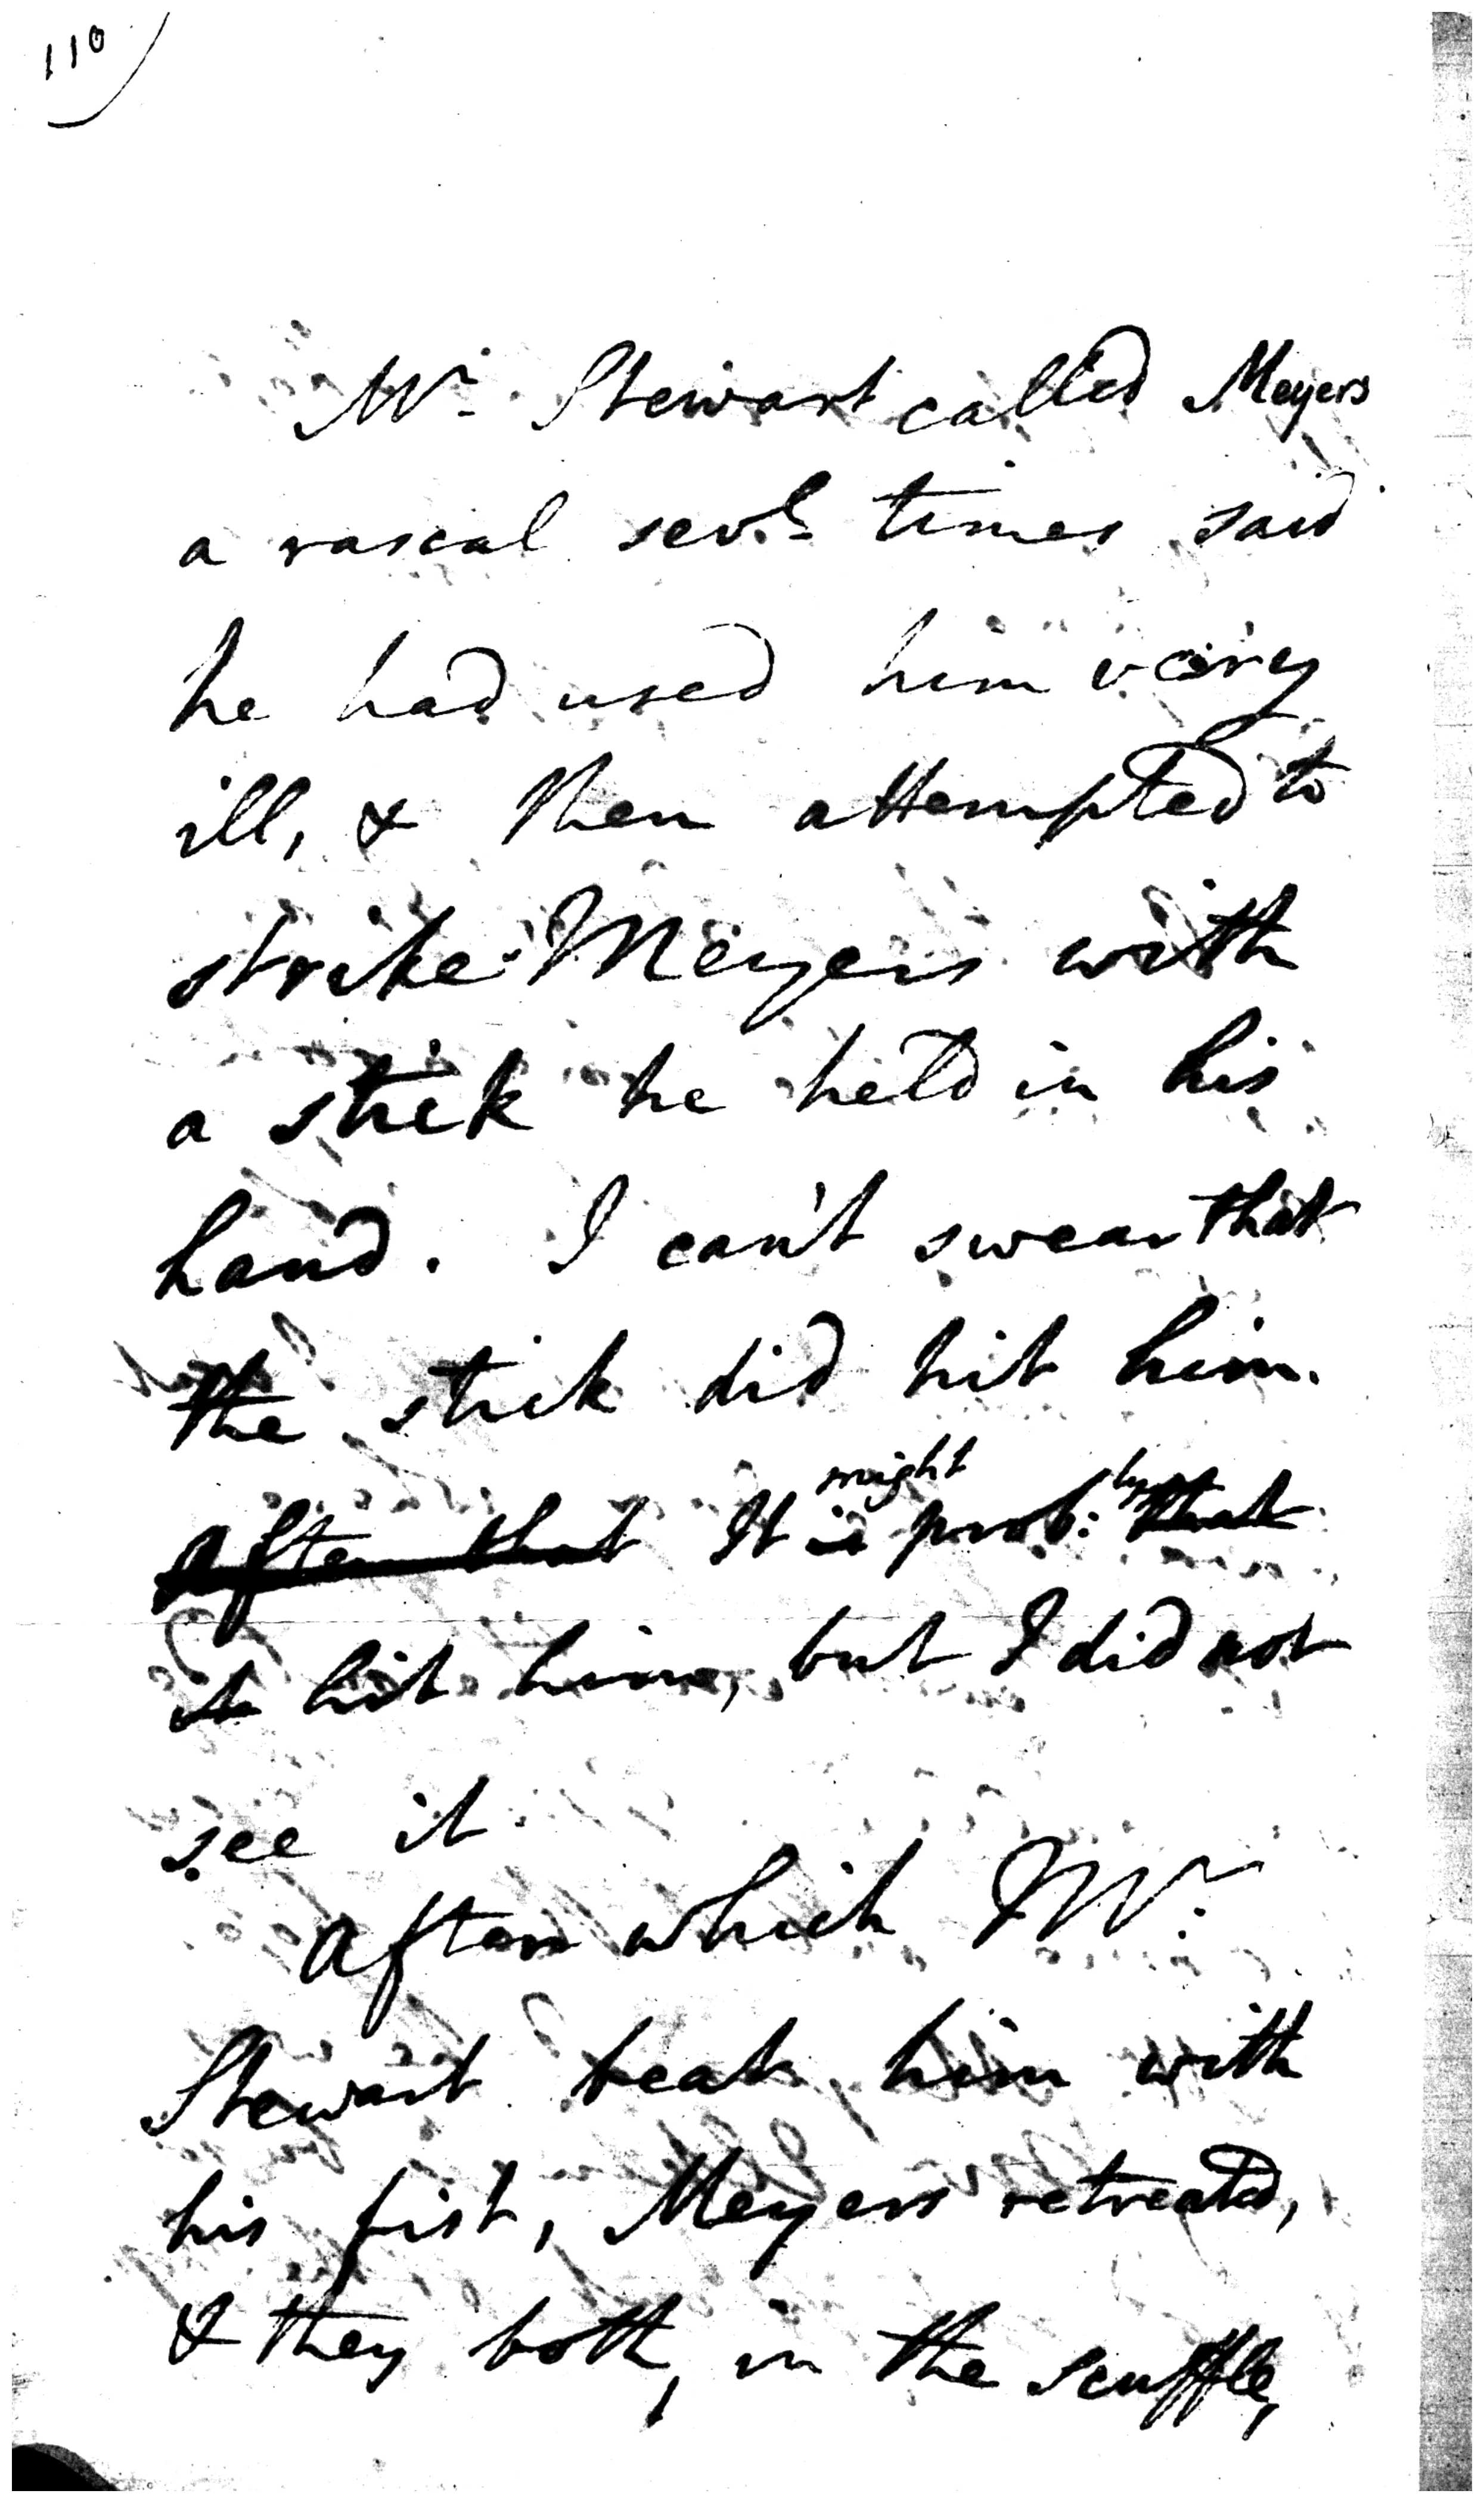 110
Mr. Stewart called Meyers
a rascal sevl. times said
he had used him very
ill, & then attempted to
strike Meyers with
a stick he held in his
hand. I can't swear that
the stick did hit him.
after that It is might prob:bly that
it hit him, but I did not
see it.
after which Mr.
Stewart beat him with
his fist, Meyers retreated,
& they both, in the scuffle,